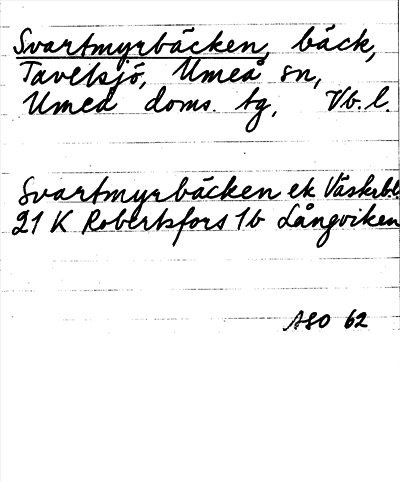 Svartmyrbäcken, bäck,
Tavelsjö, Umeå sn,
Umeå doms. tg, Vb. l.
Svartmyrbäcken ek
21 K Robertsfors 1b Långviken
ASO 62